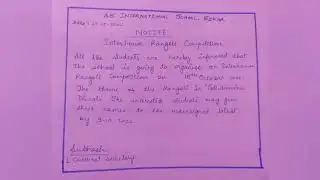 ABC INTERNATIONAL SCHOOL,
NOTICE
Interhouse Rangoli Competition
All the students are hereby informed that
the school is going to organise an Interhouse
Rangoli Competition on 10th October
The theme of the Rangoli is
Diwali. The interested students may give
their names to the undersigned latest
by
Subhash
Cultural Secretary